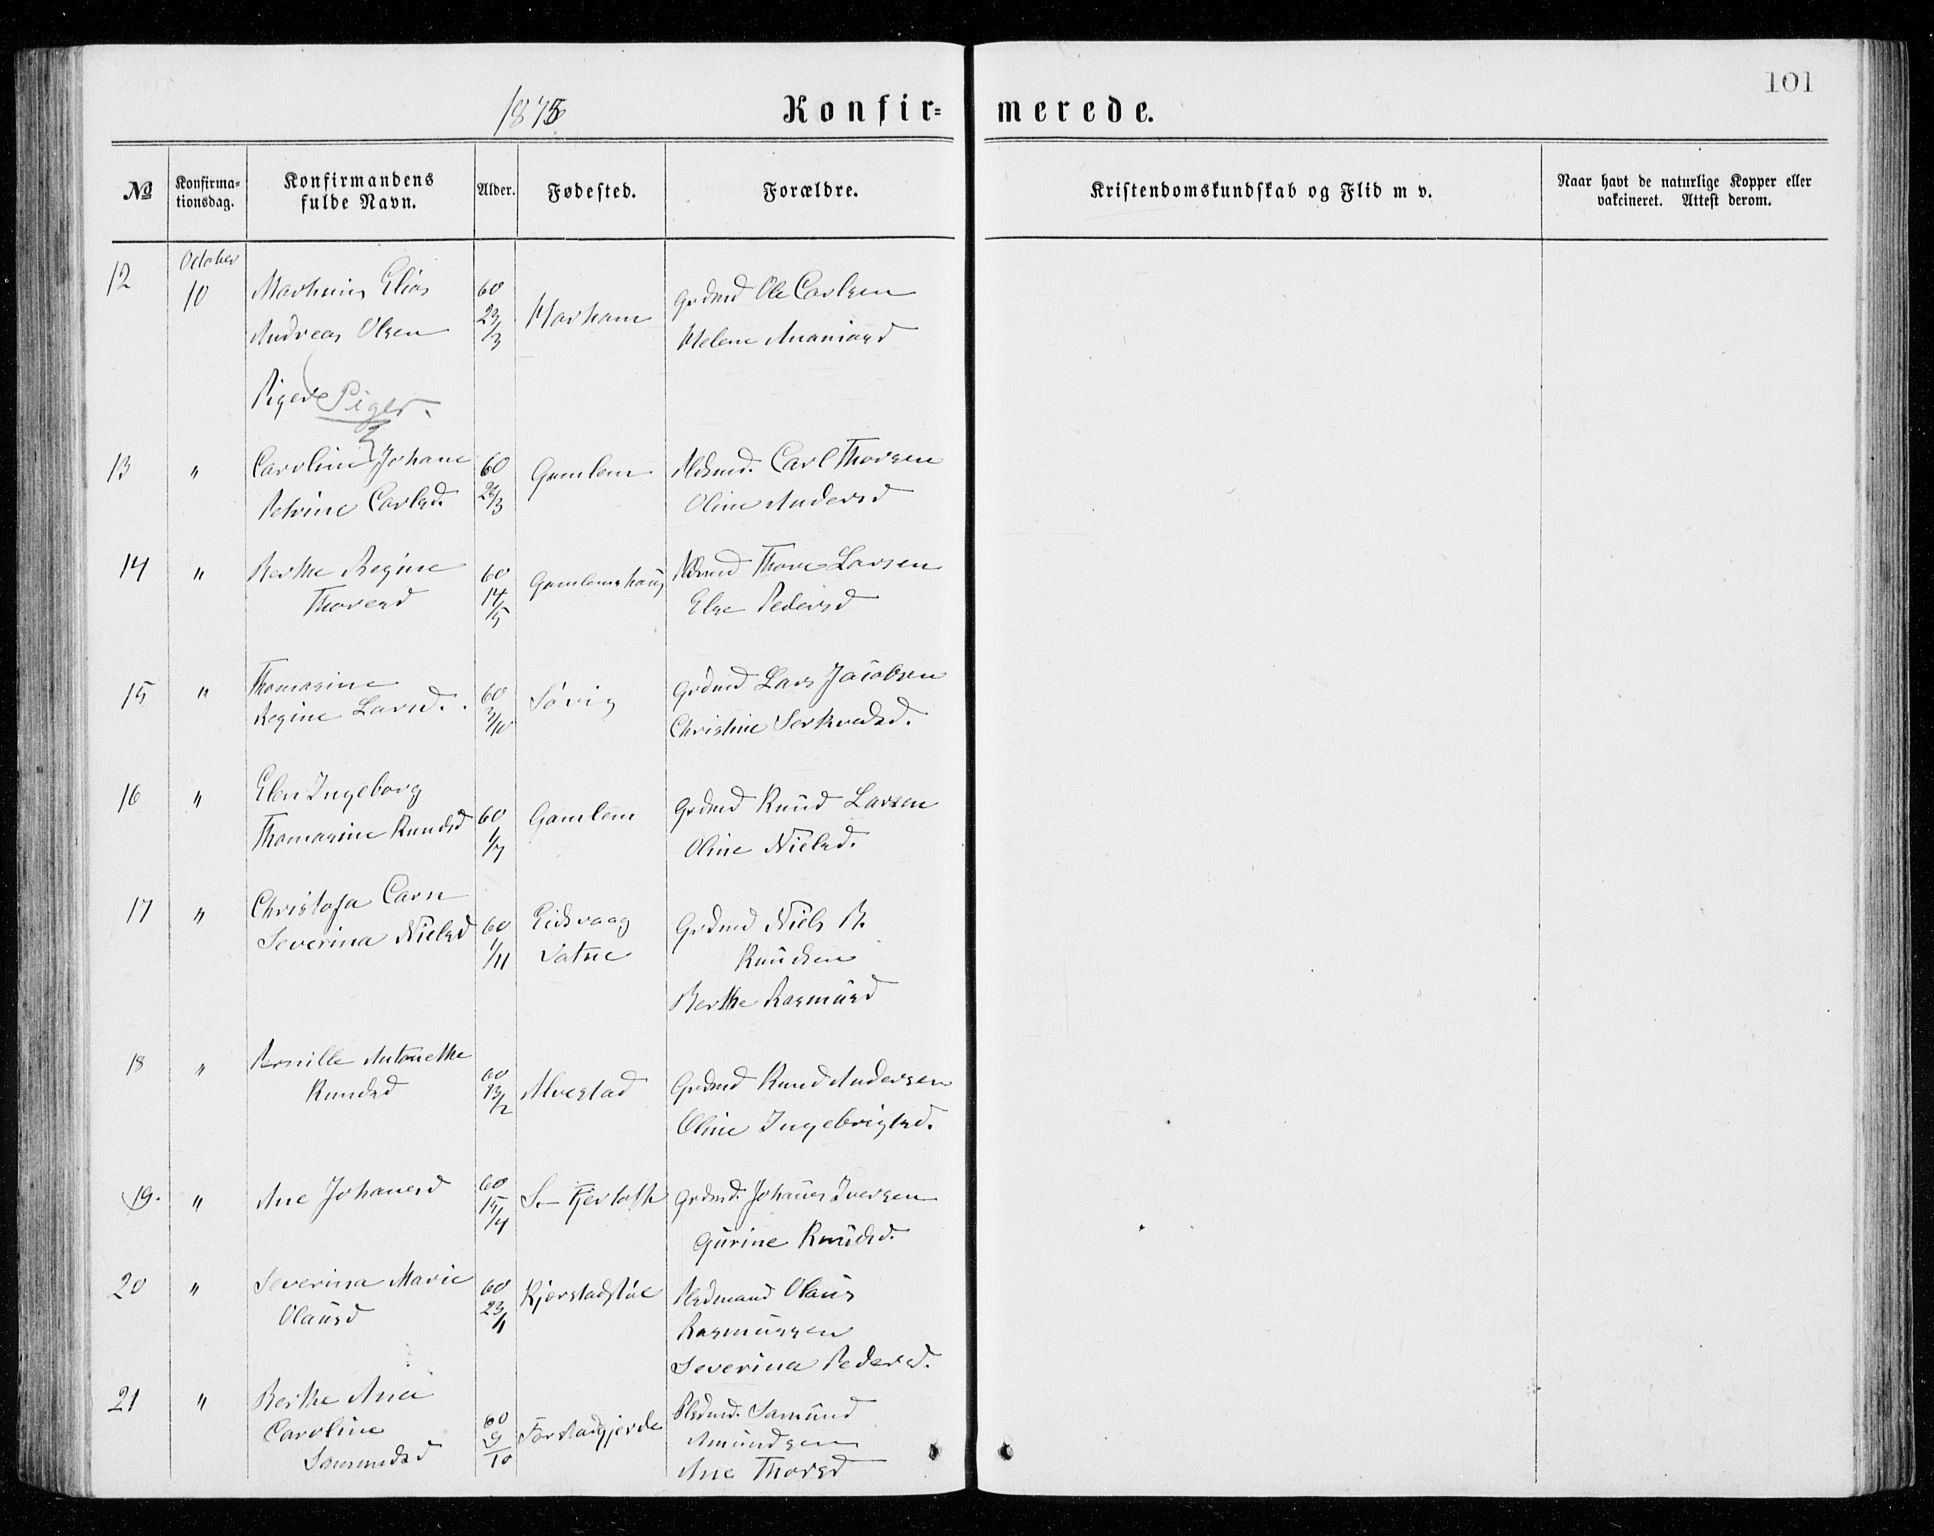 101
1875
Konfir= merede.
No
Konfirma-
tionsdag.
Konfirmandens
fulde Navn.
Alder.
Fødested.
Forældre.
Kristendomskundskab og Flid m v.
Naar havt de naturlige Kopper eller
vakcineret. Attest derom.
12 October 10 Mathias Elias 60 23/3 Harham Grdmd Ole Carlsen
Andreas Olsen Helene Ananiasd
Piger Piger.
13 " Caroline Johane 60 24/3 Gamlem Plsmd. Carl Thorsen
Petrine Carlsd. Oline Andersd
14 " Berthe Regine 60 14/5 Gamlemshaug Plsmd Thore Larsen
Thoresd Else Pedersd
15 " Thomasine 60 3/10 Søvig Grdmd Lars Jacobsen
Regine Larsd. Christine Serkvedsd.
16 " Elen Ingeborg 60 1/7 Gamlem Grdmd Knud Larsen
Thomasine Knudsd Oline Nielsd.
17 " Christofa Carn 60 1/11 Eidsvaag Grdmd Niels R.
Severina Nielsd Vatne Knudsen
Berthe Rasmusd
18 " Pernille Antonethe 60 13/2 Alvestad Grdmd Knud Andersen
Knudsd Oline Ingebrigtsd.
19. " Ane Johanesd 60 15/4 S. Fjertoft Grdmd. Johanes Iversen
Gurine Knudsd.
20 " Severina Marie 60 23/11 Kjerstadstøl Pladsmand Olaus
Olausd Rasmussen
Severina Pedersd.
21 " Berthe Ane 60 9/10 Farstadgjerde Pladsmd. Samund
Caroline Amundsen
Samundsd Ane Thoresd